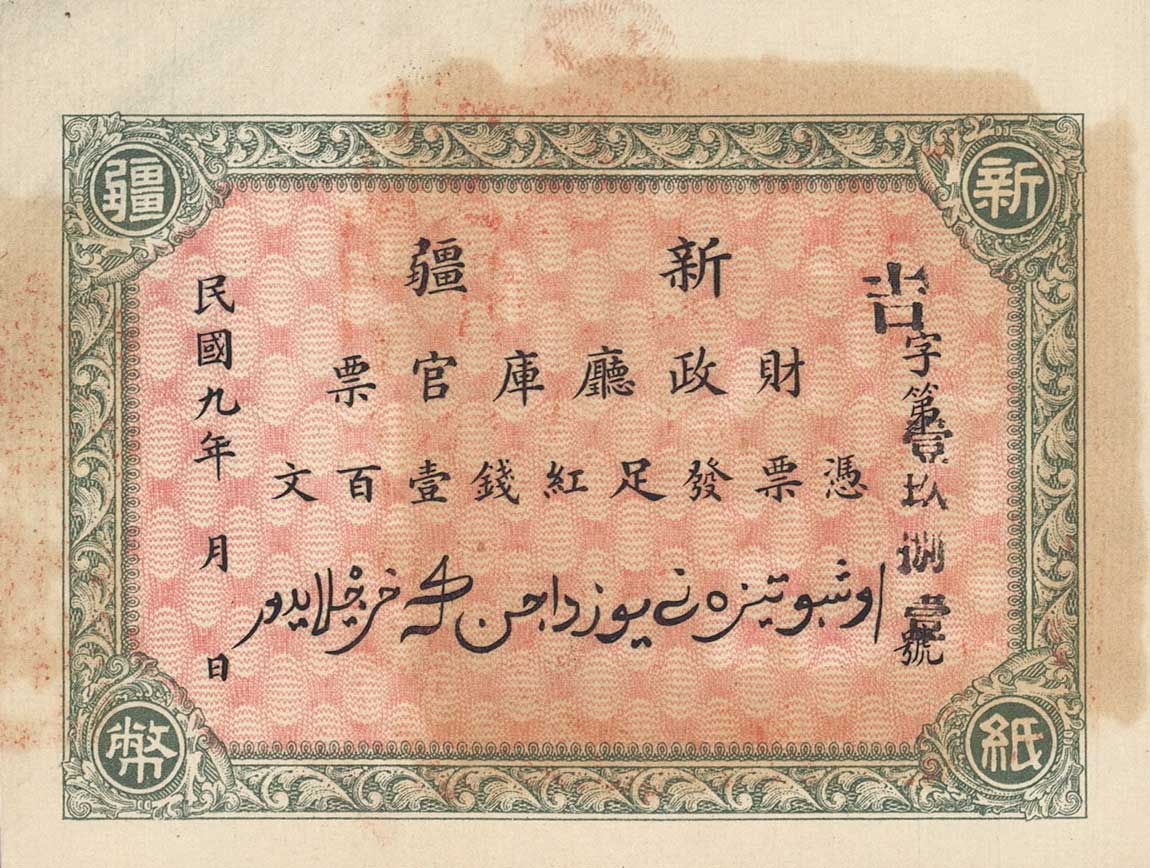 新疆
紙幣
新疆
財政廳庫官票
憑票發足紅錢壹百文
اوشبو تیزه نی یوز داجن که خرجلایدور
吉字第壹玖捌壹號
民國九年 月 日